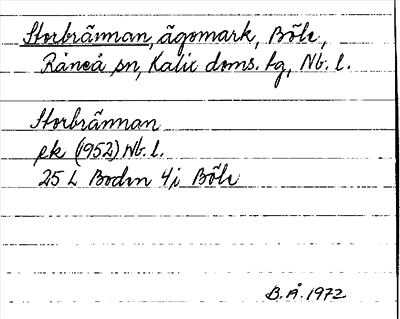 Storbrännan, ägomark, Böle,
Råneå sn, Kalix doms. tg, Nb. l.
Storbrännan
ek (1952) Nb. l.
25 L Boden 4j Böle
B.Å. 1972